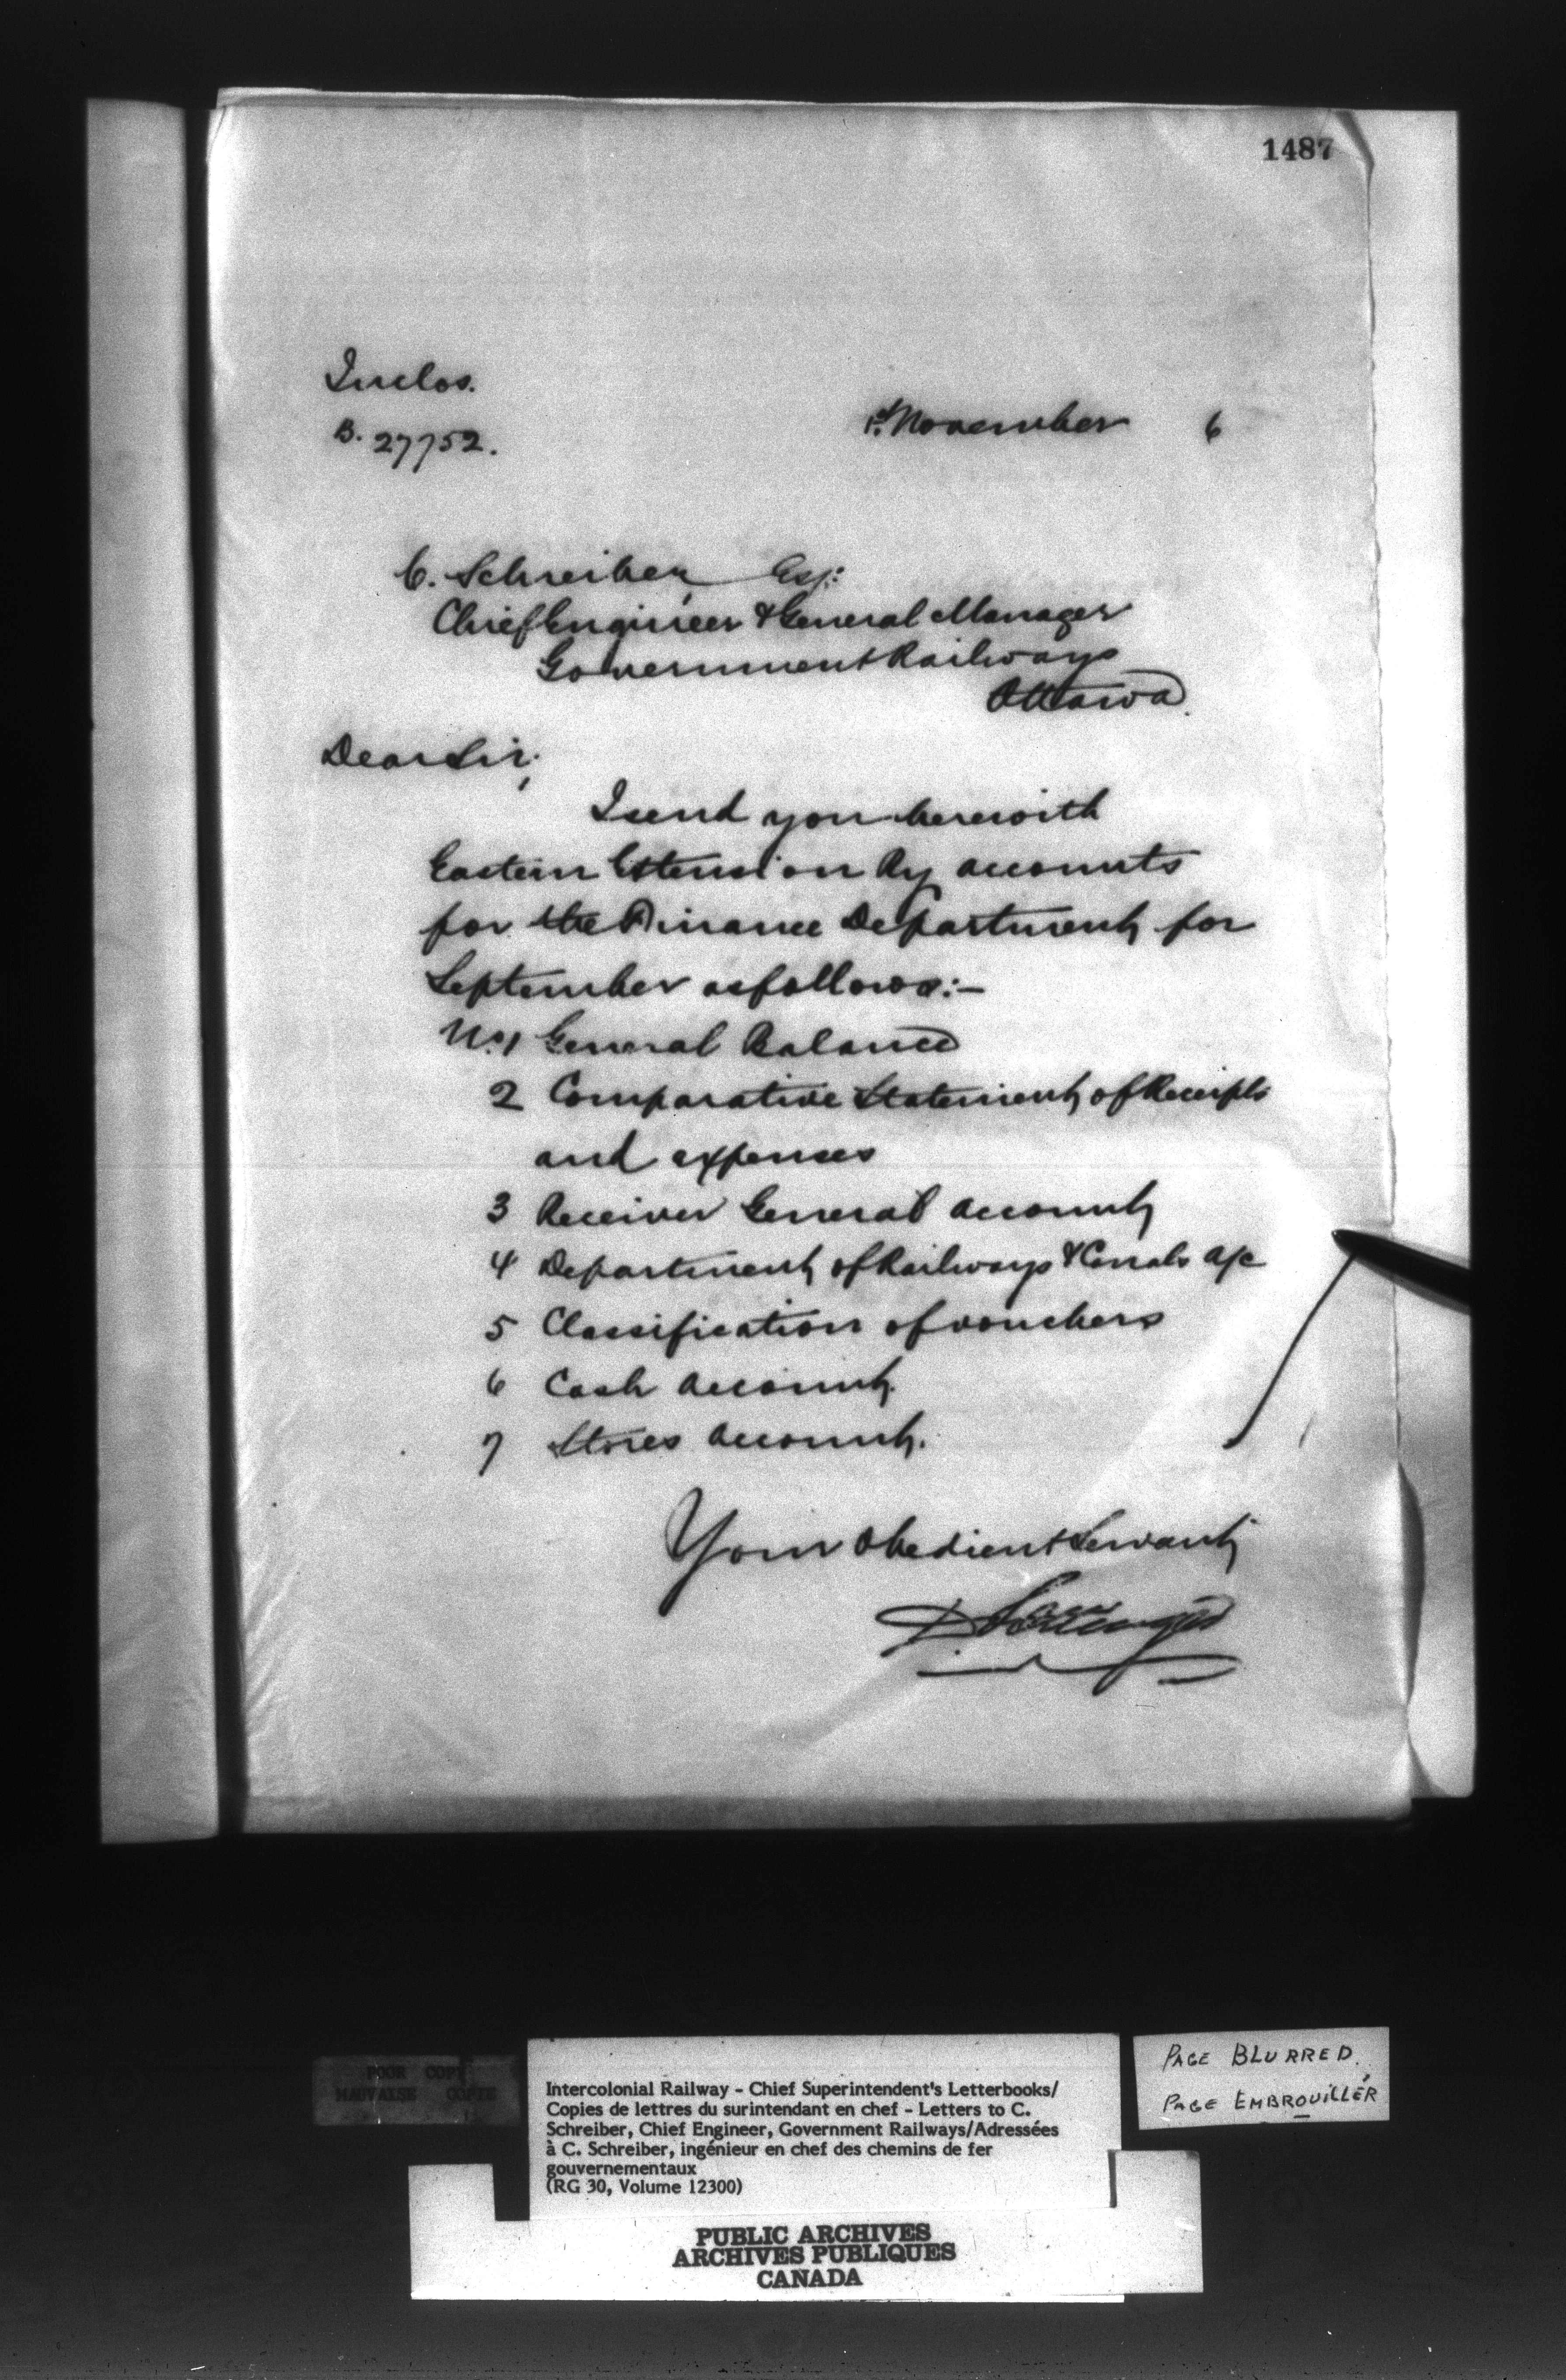 1487
Inclos.
B. 27752.
1st November 6
C. Schreiber, Esq:
Chief Engineer & General Manager
Government Railways
Ottawa.
Dear Sir;
I send you herewith
Eastern Extension Ry accounts
for the Finance Department for
September as follows:-
No. 1 General Balance
2 Comparative Statement of Receipts
and expenses
3 Receiver General account
4 Department of Railways & Canals a/c
5 Classification of vouchers
6 Cash account.
7 Stores account.
Your Obedient Servant
D. Pottinger
POOR COPY
MAUVAISE COPIE
Intercolonial Railway - Chief Superintendent's Letterbooks/
Copies de lettres du surintendant en chef - Letters to C.
Schreiber, Chief Engineer, Government Railways/Adressées
à C. Schreiber, ingénieur en chef des chemins de fer
gouvernementaux
(RG 30, Volume 12300)
PAGE BLURRED.
PAGE EMBROUILLÉR
PUBLIC ARCHIVES
ARCHIVES PUBLIQUES
CANADA